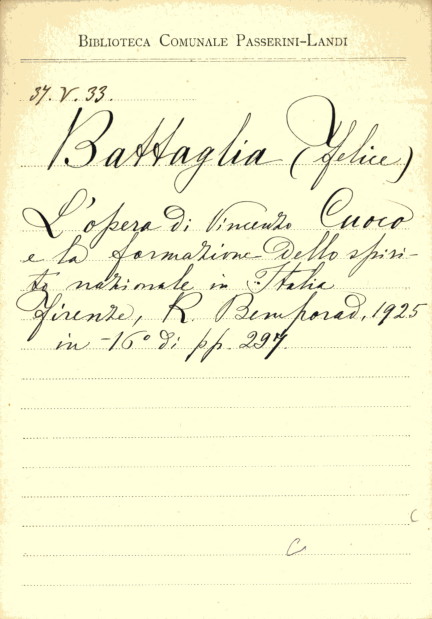 BIBLIOTECA COMUNALE PASSERINI-LANDI
37.V.33.
Battaglia (Felice)
L'opera di Vincenzo Cuoco
e la formazione dello spiri-
to nazionale in Italia
Firenze, R. Bemporad, 1925
in -16° di pp. 297.
C
C